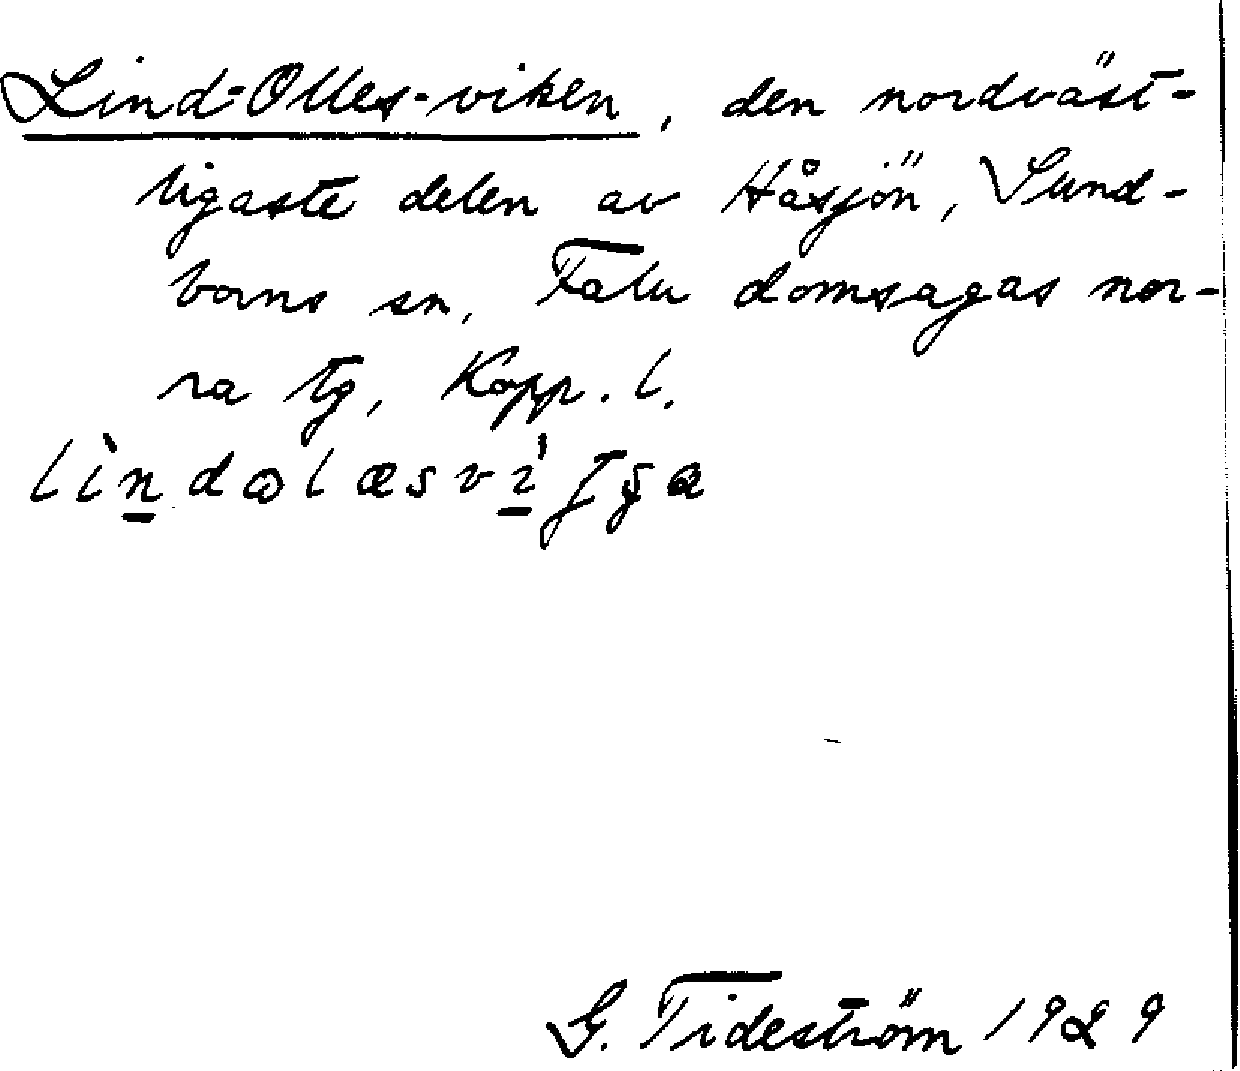 Lind-Olles-viken, den nordväst-
ligaste delen av Håsjön, Sund-
borns sn, Falu domsagas nor-
ra tg, Kopp. l.
G. Tideström 1929